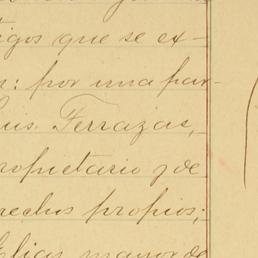 tigos que se ex-
n: por una par-
uis Terrazas,
ropietario y de
rechos propios;
Elias, mayor de